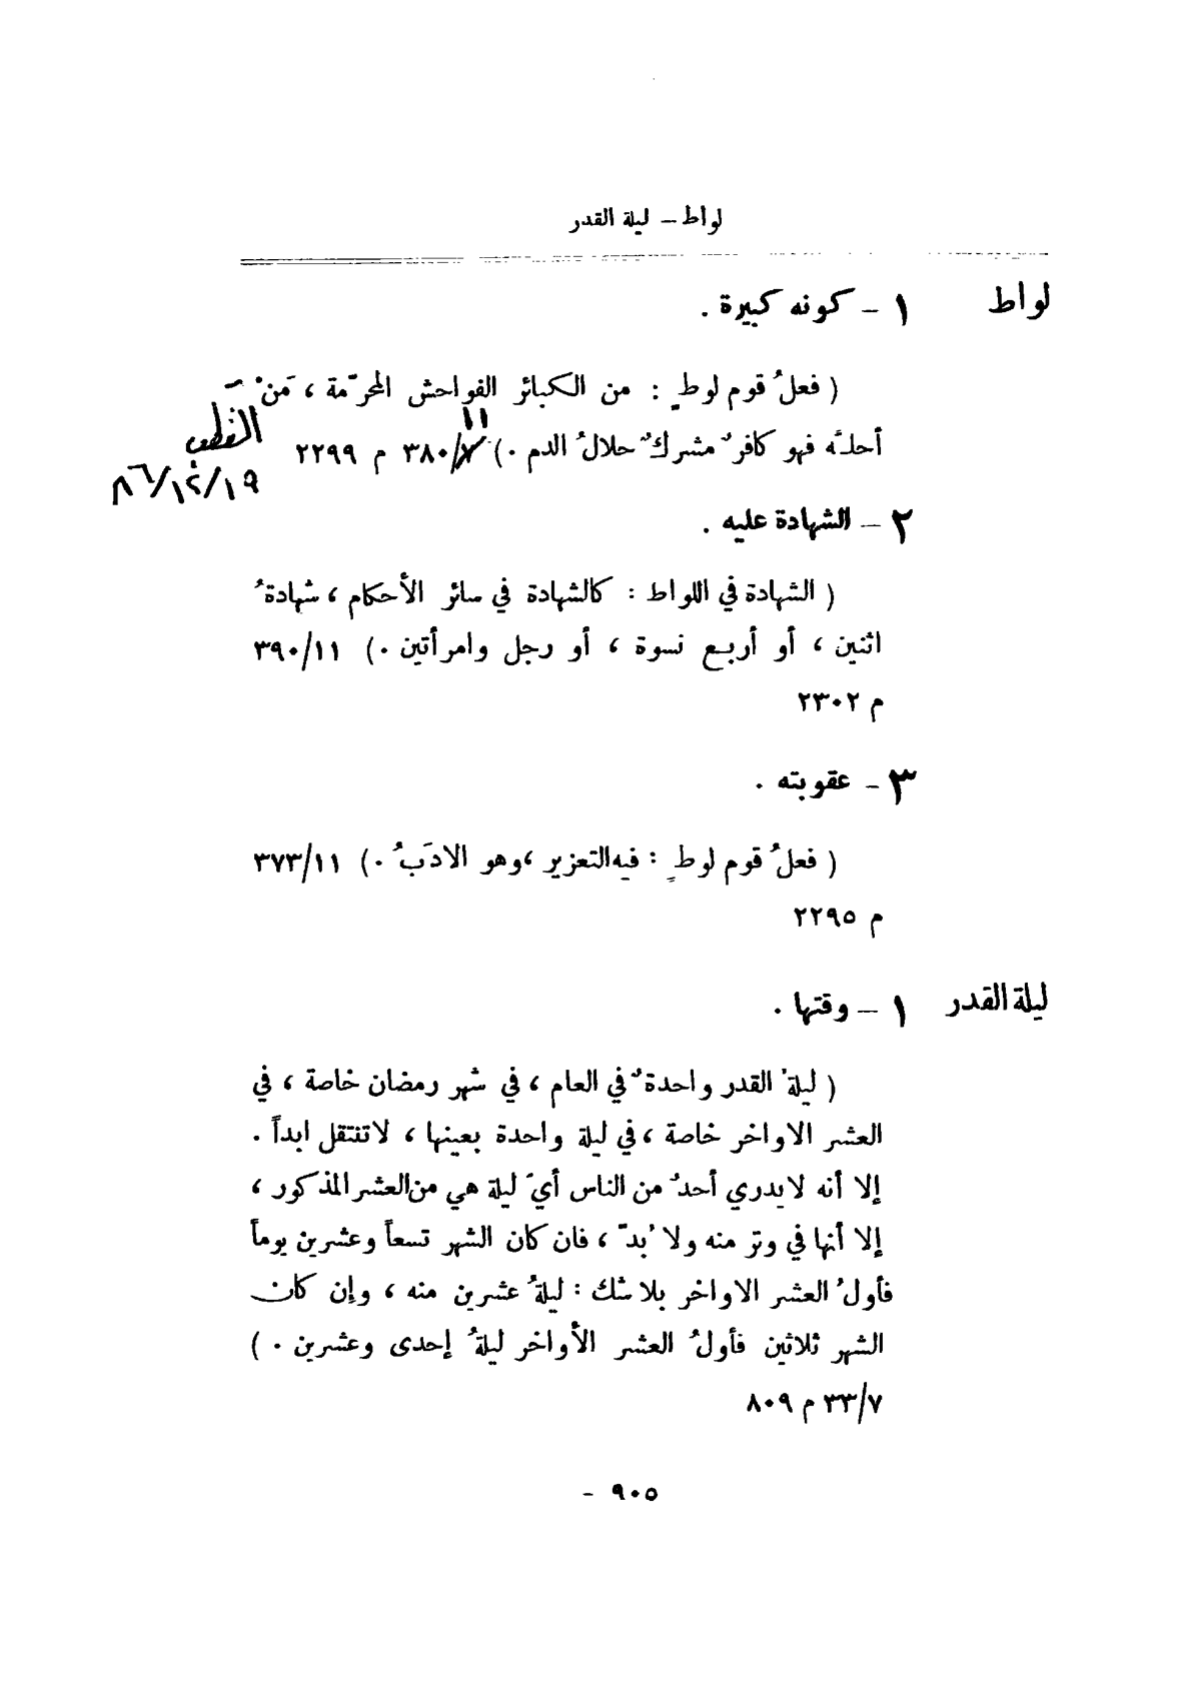 لواط – ليلة القدر
لواط ١ – كونه كبيرة .
( فعلُ قوم لوطٍ : من الكبائر الفواحش المحرّمة ، مَنْ
أحلّه فهو كافرٌ مشركٌ حلالُ الدم . ) ١١/٣٨٠ م ٢٢٩٩
٨٦/١٢/١٩
٢ – الشهادة عليه .
( الشهادة في اللواط : كالشهادة في سائر الأحكام ، شهادةُ
اثنين ، أو أربع نسوة ، أو رجل وامرأتين . ) ١١/٣٩٠
م ٢٣٠٢
٣ – عقوبته .
( فعلُ قوم لوطٍ : فيه التعزير ، وهو الادَبُ . ) ١١/٣٧٣
م ٢٢٩٥
ليلة القدر ١ – وقتها .
( ليلةُ القدر واحدةٌ في العام ، في شهر رمضان خاصة ، في
العشر الاواخر خاصة ، في ليلة واحدة بعينها ، لاتنتقل ابداً .
إلا أنه لايدري أحدٌ من الناس أيّ ليلة هي من العشر المذكور ،
إلا أنها في وتر منه ولا بُدّ ، فان كان الشهر تسعاً وعشرين يوماً
فأولُ العشر الاواخر بلا شك : ليلةُ عشرين منه ، وإن كان
الشهر ثلاثين فأولُ العشر الأواخر ليلةُ إحدى وعشرين . )
٧/٣٣ م ٨٠٩
٩٠٥ -